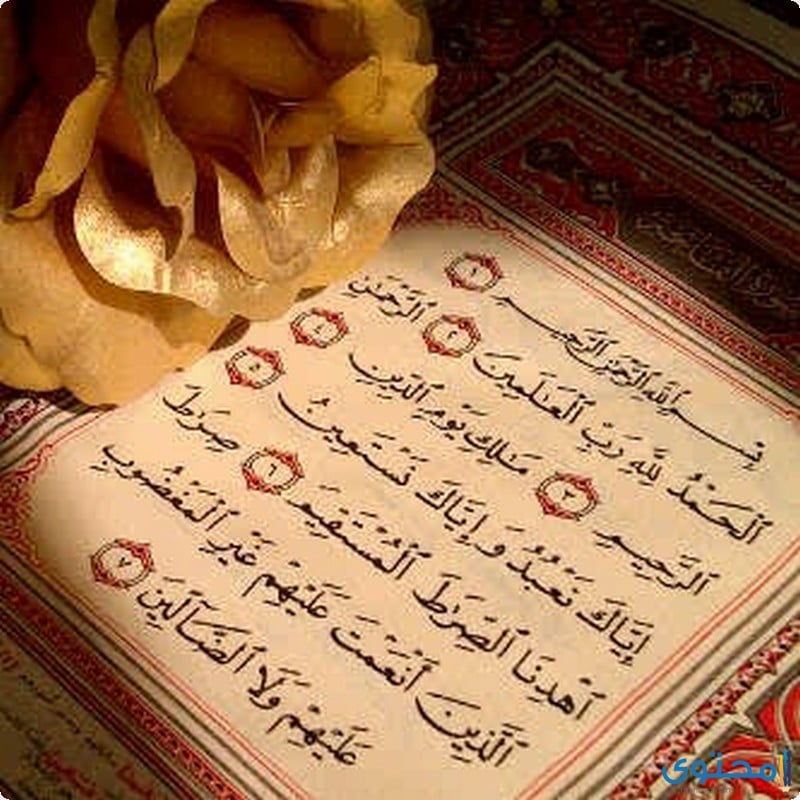 سورة الفاتحة
بِسْمِ ٱللَّهِ ٱلرَّحْمَٰنِ ٱلرَّحِيمِ ١
ٱلْحَمْدُ لِلَّهِ رَبِّ ٱلْعَٰلَمِينَ ٢ ٱلرَّحْمَٰنِ
ٱلرَّحِيمِ ٣ مَٰلِكِ يَوْمِ ٱلدِّينِ ٤
إِيَّاكَ نَعْبُدُ وَإِيَّاكَ نَسْتَعِينُ ٥
ٱهْدِنَا ٱلصِّرَٰطَ ٱلْمُسْتَقِيمَ ٦ صِرَٰطَ
ٱلَّذِينَ أَنْعَمْتَ عَلَيْهِمْ غَيْرِ ٱلْمَغْضُوبِ
عَلَيْهِمْ وَلَا ٱلضَّآلِّينَ ٧
محتوى